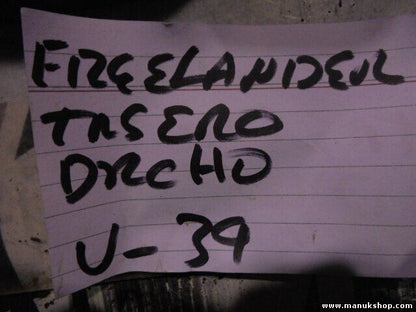 FREELANDER
TRSERO
DRCHO
U-39
www.manukshop.com